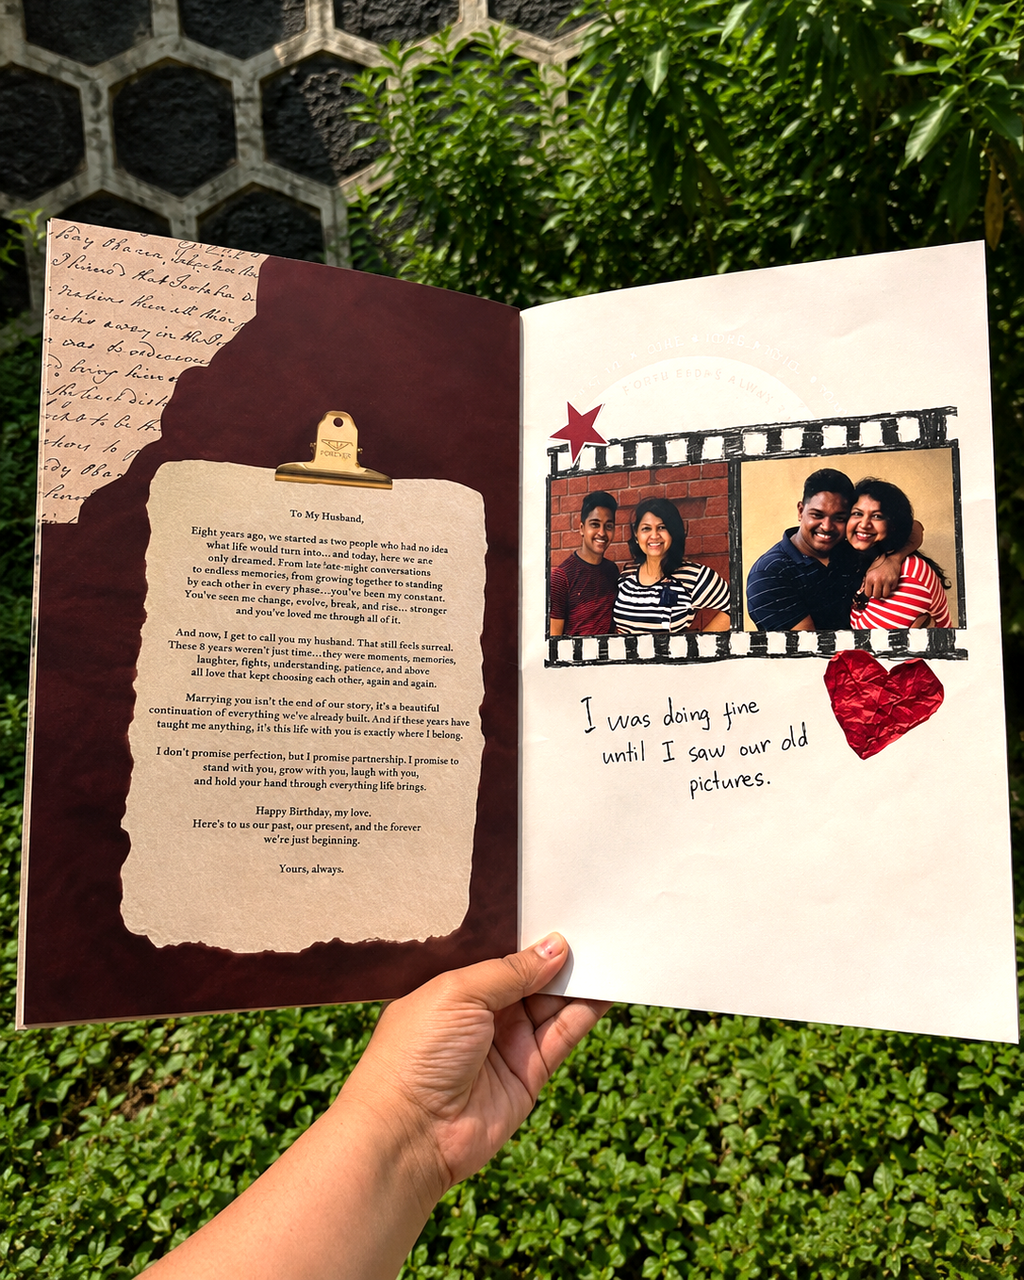 To My Husband,
Eight years ago, we started as two people who had no idea
what life would turn into... and today, here we are
only dreamed. From late 'ate-night conversations
to endless memories, from growing together to standing
by each other in every phase...you've been my constant.
You've seen me change, evolve, break, and rise... stronger
and you've loved me through all of it.
And now, I get to call you my husband. That still feels surreal.
These 8 years weren't just time...they were moments, memories,
laughter, fights, understanding, patience, and above
all love that kept choosing each other, again and again.
Marrying you isn't the end of our story, it's a beautiful
continuation of everything we've already built. And if these years have
taught me anything, it's this life with you is exactly where I belong.
I don't promise perfection, but I promise partnership. I promise to
stand with you, grow with you, laugh with you,
and hold your hand through everything life brings.
Happy Birthday, my love.
Here's to us our past, our present, and the forever
we're just beginning.
Yours, always.
I was doing fine
until I saw our old
pictures.